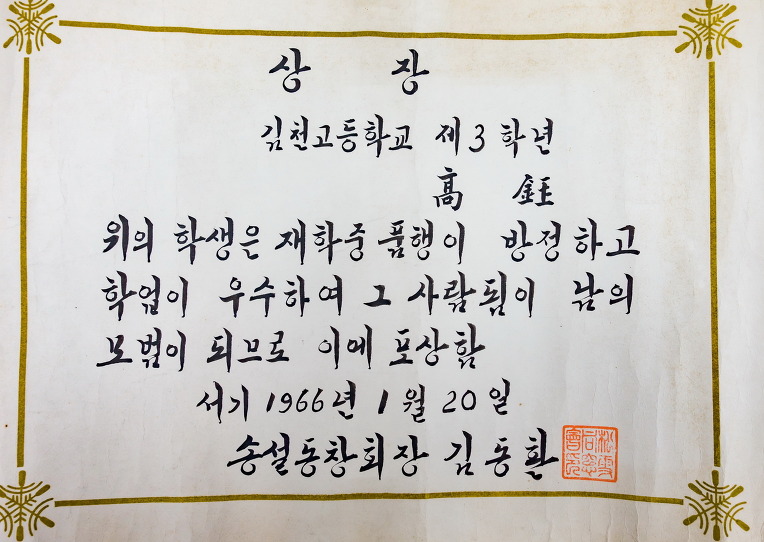 상 장
김천고등학교 제3학년
高 鈺
위의 학생은 재학중 품행이 방정하고
학업이 우수하여 그 사람됨이 남의
모범이 되므로 이에 포상함
서기 1966년 1월 20일
송설동창회장 김동환